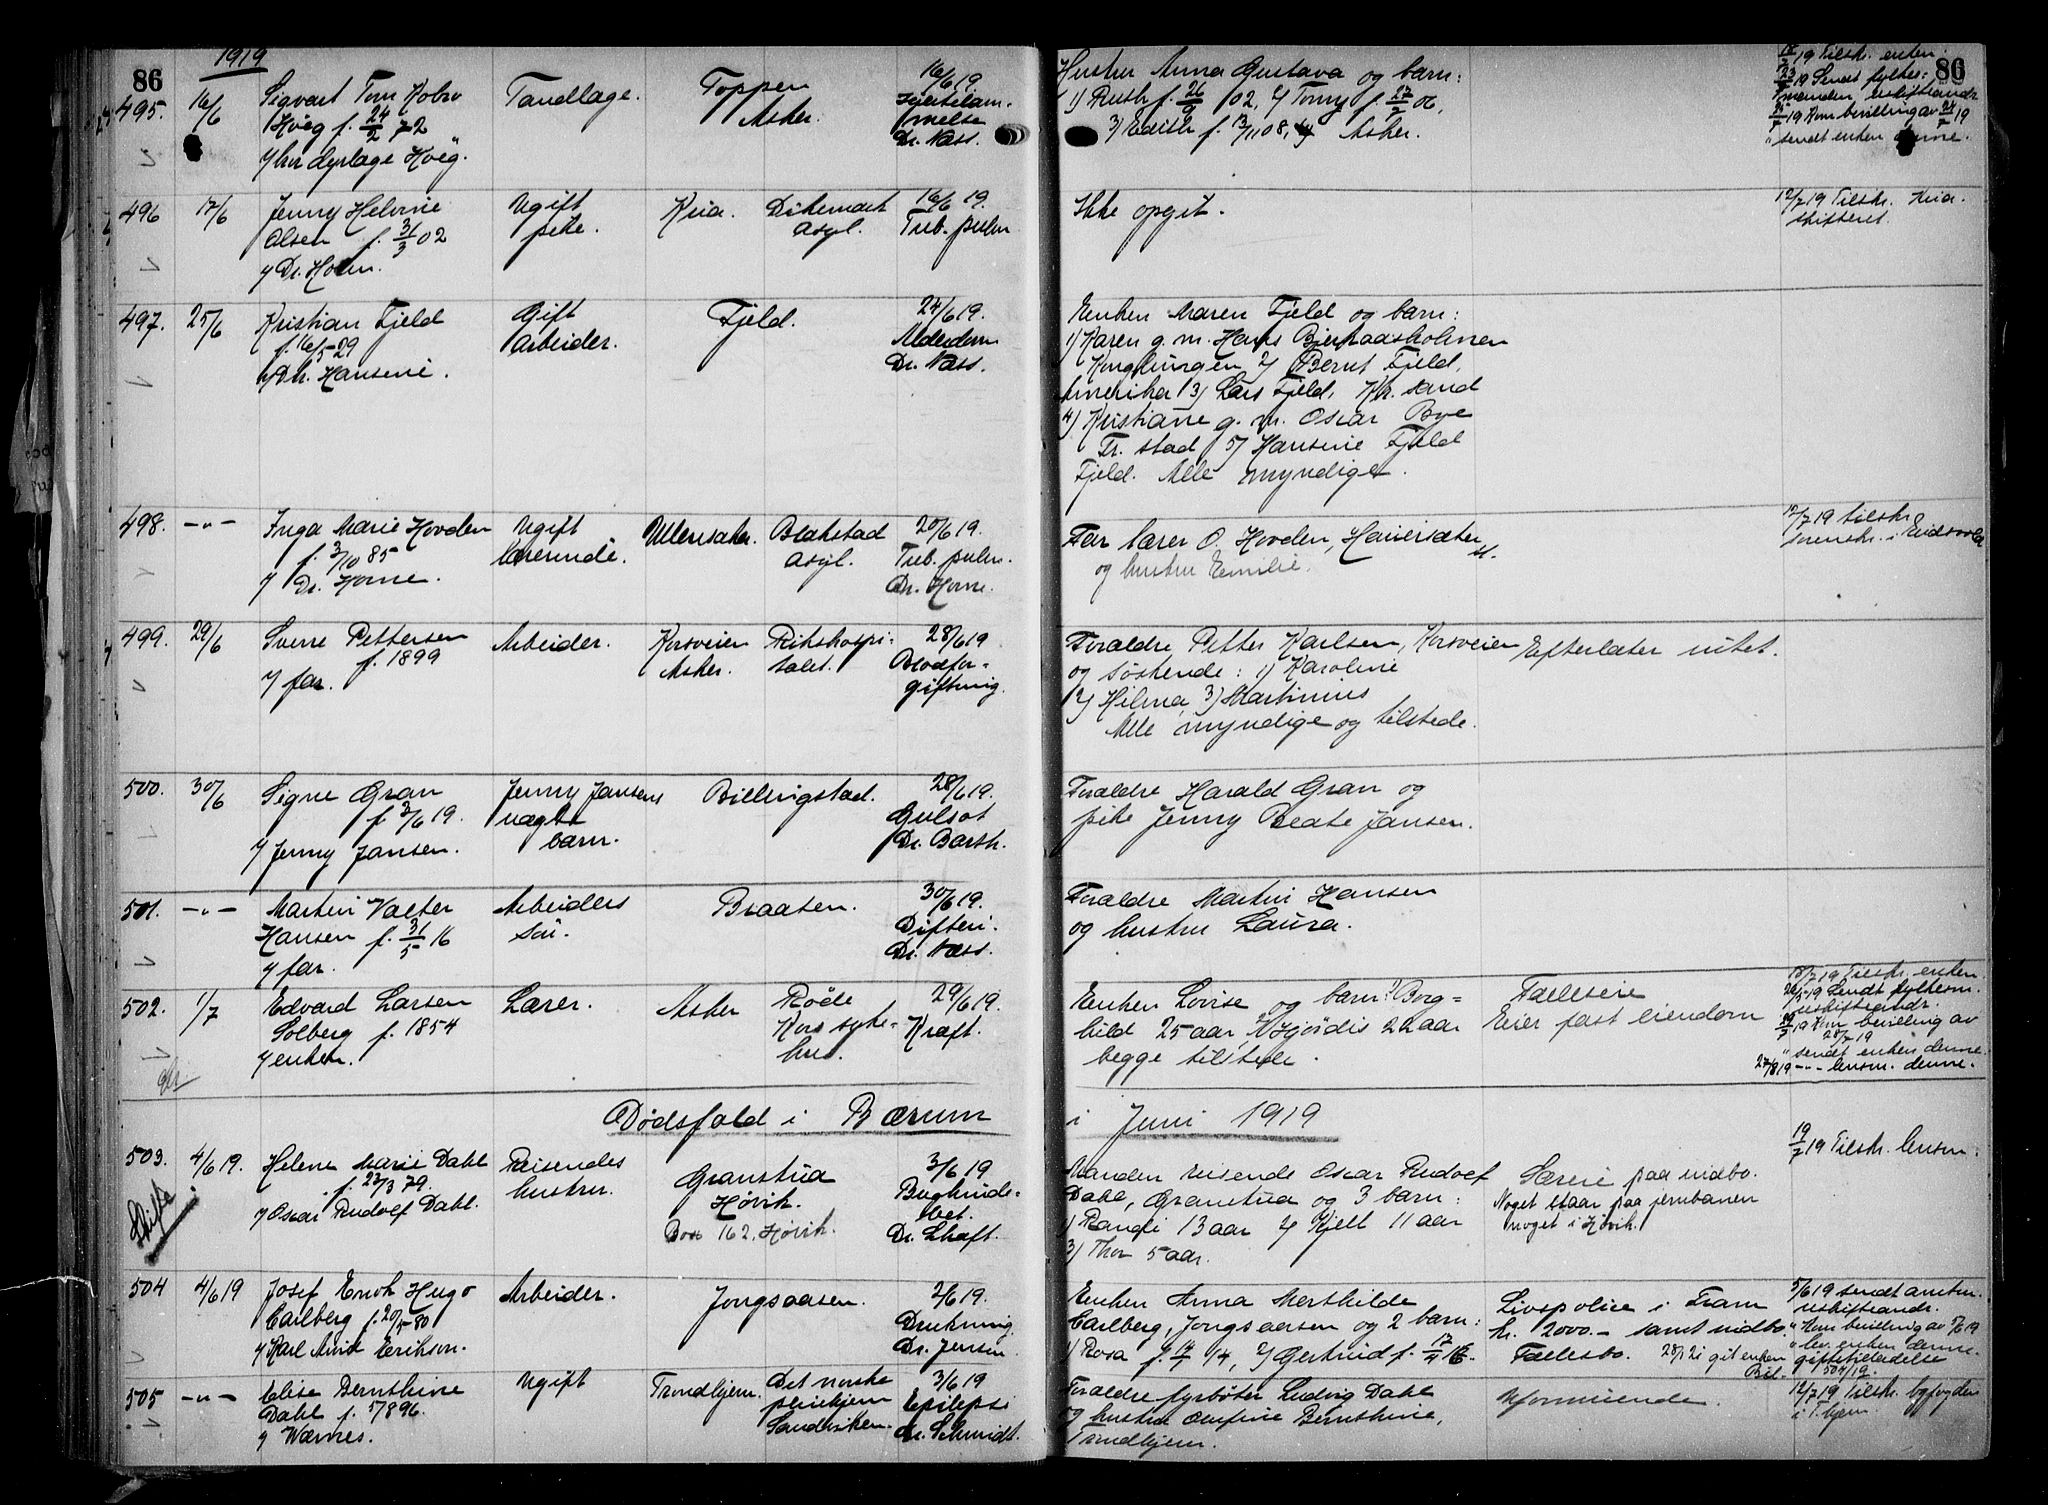 86
1919
86
495. 16/6
Sigvart Tom Kobro
Høeg f. 24/2 72
v/ bror dyrlæge Høeg.
Tandlæge.
Toppen
Asker.
16/6 19.
Hjertelam-
melse
Dr. Næss.
Hustru Anna Gustava og barn:
1) Ruth f. 26/9 02, 2) Tony f. 27/7 06,
3) Edith f. 13/11 08, Asker.
18/7 19 Tilskr. enken
23/7 19 Sendt fylkes-
manden uskifteandr.
19 Kom bevilling av 24/7 19
" sendt enken denne.
496 17/6
Jenny Helvine
Olsen f. 31/3 02
v/ Dr. Holm.
Ugift
pike.
Kria.
Dikemark
Asyl.
16/6 19.
Tub. pulm
Ikke opgit.
12/7 19 Tilskr. Kria.
skifteret.
497. 25/6
Kristian Fjeld
f. 16/5 29
v/ Dtr. Hansine.
Gift
Arbeider.
Fjeld.
24/6 19.
Alderdom
Dr. Næss.
Enken Maren Fjeld og barn:
1) Karen g. m. Hans Bjerkaasholmen
Konglungen 2) Bernt Fjeld,
Amerika 3) Lars Fjeld, Kr. sand
4) Kristiane g. m. Oscar Bye
Fr. stad 5) Hansine Fjeld
Fjeld. Alle myndige.
498. -"-
Inga Marie Hovden
f. 3/10 85
v/ Dr. Horne.
Ugift
lærerinde.
Ullensaker.
Blakstad
Asyl.
20/6 19.
Tub. pulm.
Dr. Horne.
Far lærer O. Hovden,
og hustru Emilie.
12/7 19 tilskr.
sorenskr. i Eidsvold
499. 29/6
Sverre Pettersen
f. 1899
v/ far.
Arbeider.
Korsveien
Asker.
Rikshospi-
talet.
28/6 19
Blodfor-
giftning.
Foraldre Petter Karlsen, Korsveien
og søskende: 1) Karoline
2) Hilma 3) Martinius
Alle myndige og tilstede.
Efterlater intet.
500. 30/6
Signe Gran
f. 3/6 19.
v/ Jenny Jansen.
Jenny Jansens
uægte
barn.
Billingstad.
28/6 19.
Gulsot
Dr. Barth.
Foraldre Harald Gran og
pike Jenny Beate Jansen.
501. -"-
Martin Valter
Hansen f. 31/5 16
v/ far.
Arbeiders
søn.
Braaten.
30/6 19.
Difteri.
Dr. Næss.
Foraldre Martin Hansen
og hustru Laura.
502. 1/7
Edvard Larsen
Solberg f. 1854
v/ enken.
Lærer.
Asker
Røde
Kors syke-
hus.
29/6 19.
Kræft.
Enken Lovise og barn: 1) Borg-
hild 25 aar, 2) Hjørdis 22 aar
begge tilstede.
Fælleseie
Eier fast eiendom
18/7 19 Tilskr. enken
19 Sendt fylkesm.
uskifteandr.
19 Kom bevilling av
28/7 19
" sendt enken denne.
27/8 19 -"- lensm. denne.
Dødsfald i Bærum
i Juni 1919
503. 4/6 19.
Skifte
Helene Marie Dahl
f. 23/3 79.
v/ Oscar Rudolf Dahl.
Reisendes
hustru.
Granstua
Høvik.
Box 162, Høvik.
3/6 19
Bughinde-
bet.
Dr. Shaft.
Manden reisende Oscar Rudolf
Dahl, Granstua og 3 barn:
1) Randi 13 aar 2) Kjell 11 aar
3) Thor 5 aar.
Særeie paa indbo.
Noget staar paa jernbanen
noget i Høvik.
19/7 19 Tilskr. lensm.
504 4/6 19
Josef Enok Hugo
Carlberg f. 20/5 80
v/ Karl Arvid Erikson.
Arbeider.
Jongsaasen.
2/6 19.
Drukning.
Dr. Jensen.
Enken Anna Merthilde
Carlberg, Jongsaasen og 2 barn:
1) Rosa f. 14, 2) Gertrud f. 16.
Livspolice i Fram
kr. 2000.- samt indbo.
Fællesbo.
28/12 git enken giftetilladelse
Bil. 504/19.
5/6 19 sendt amtm.
uskifteandr.
" Kom bevilling av 7/6 19
" lev. enken denne.
505 -"-
Elise Bernthine
Dahl f. 5/7 896.
v/ Wærnes.
Ugift
Trondhjem.
Det norske
pleiehjem
Sandviken.
3/6 19
Epilepsi
Dr. Schmidt.
Foraldre fyrbøter Ludvig Dahl
og hustru Olufine Bernthine,
Trondhjem.
Uformuende.
12/7 19 Tilskr. byfogden
i T.hjem